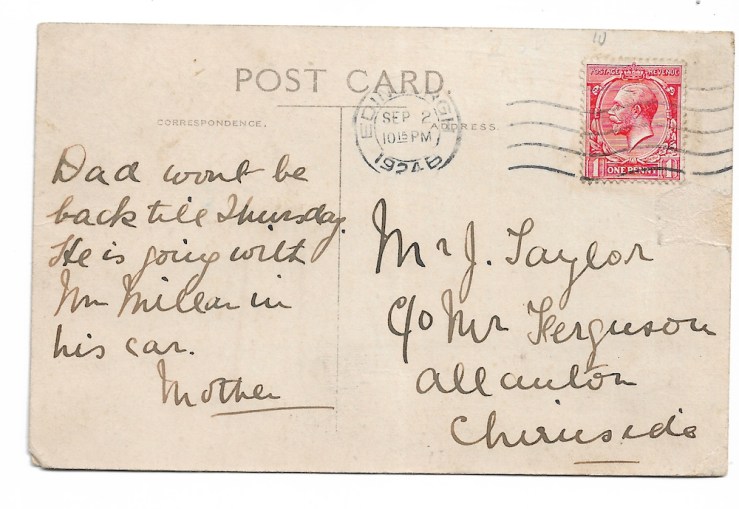 10
POST CARD.
CORRESPONDENCE.
ADDRESS.
EDINBURGH
SEP 2
10 15 PM
1924
POSTAGE REVENUE
1 ONE PENNY 1
Dad wont be
back till Thursday.
He is going with
Wm Millar in
his car.
Mother
Mr J. Taylor
c/o Mr Ferguson
Allanton
Chirnside